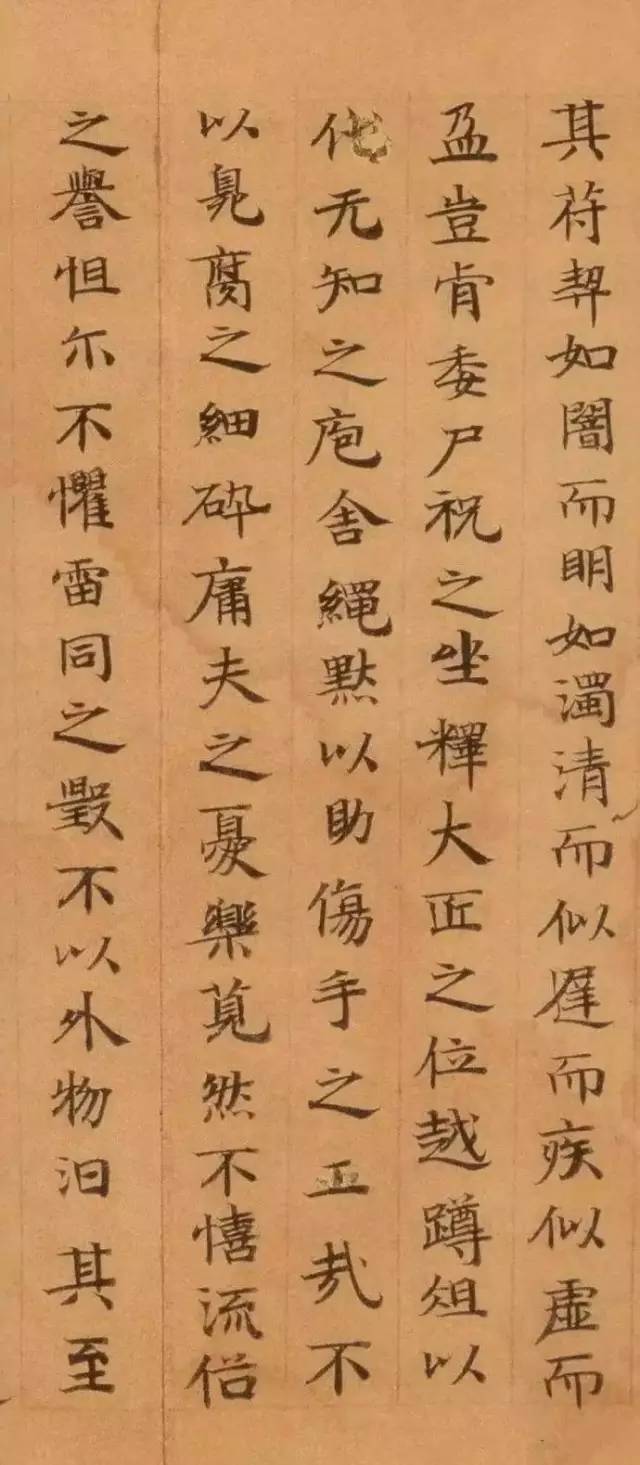 其苻契如闇而明如濁清而似遲而疾似虛而
盈豈肯委尸祝之坐釋大匠之位越蹲俎以
代无知之庖舍繩黙以助傷手之工哉不
以臰腐之細碎庸夫之憂樂莧然不憘流俗
之譽怛尒不懼雷同之毀不以外物汩其至